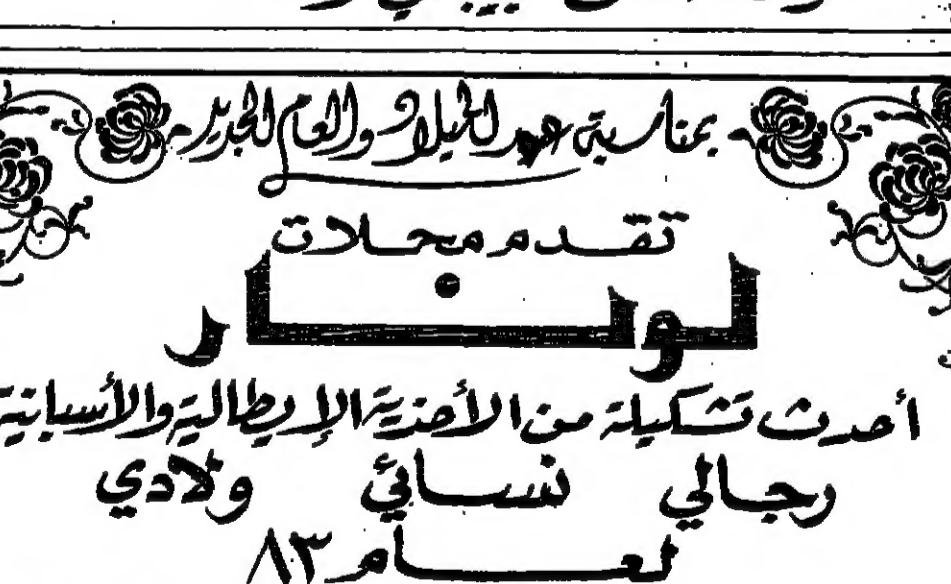 بمناسبة عيد الميلاد والعام الجديد
تقدم محلات
لونار
أحدث تشكيلة من الأحذية الإيطالية والأسبانية
رجالي نسائي ولادي
لعام ٨٣